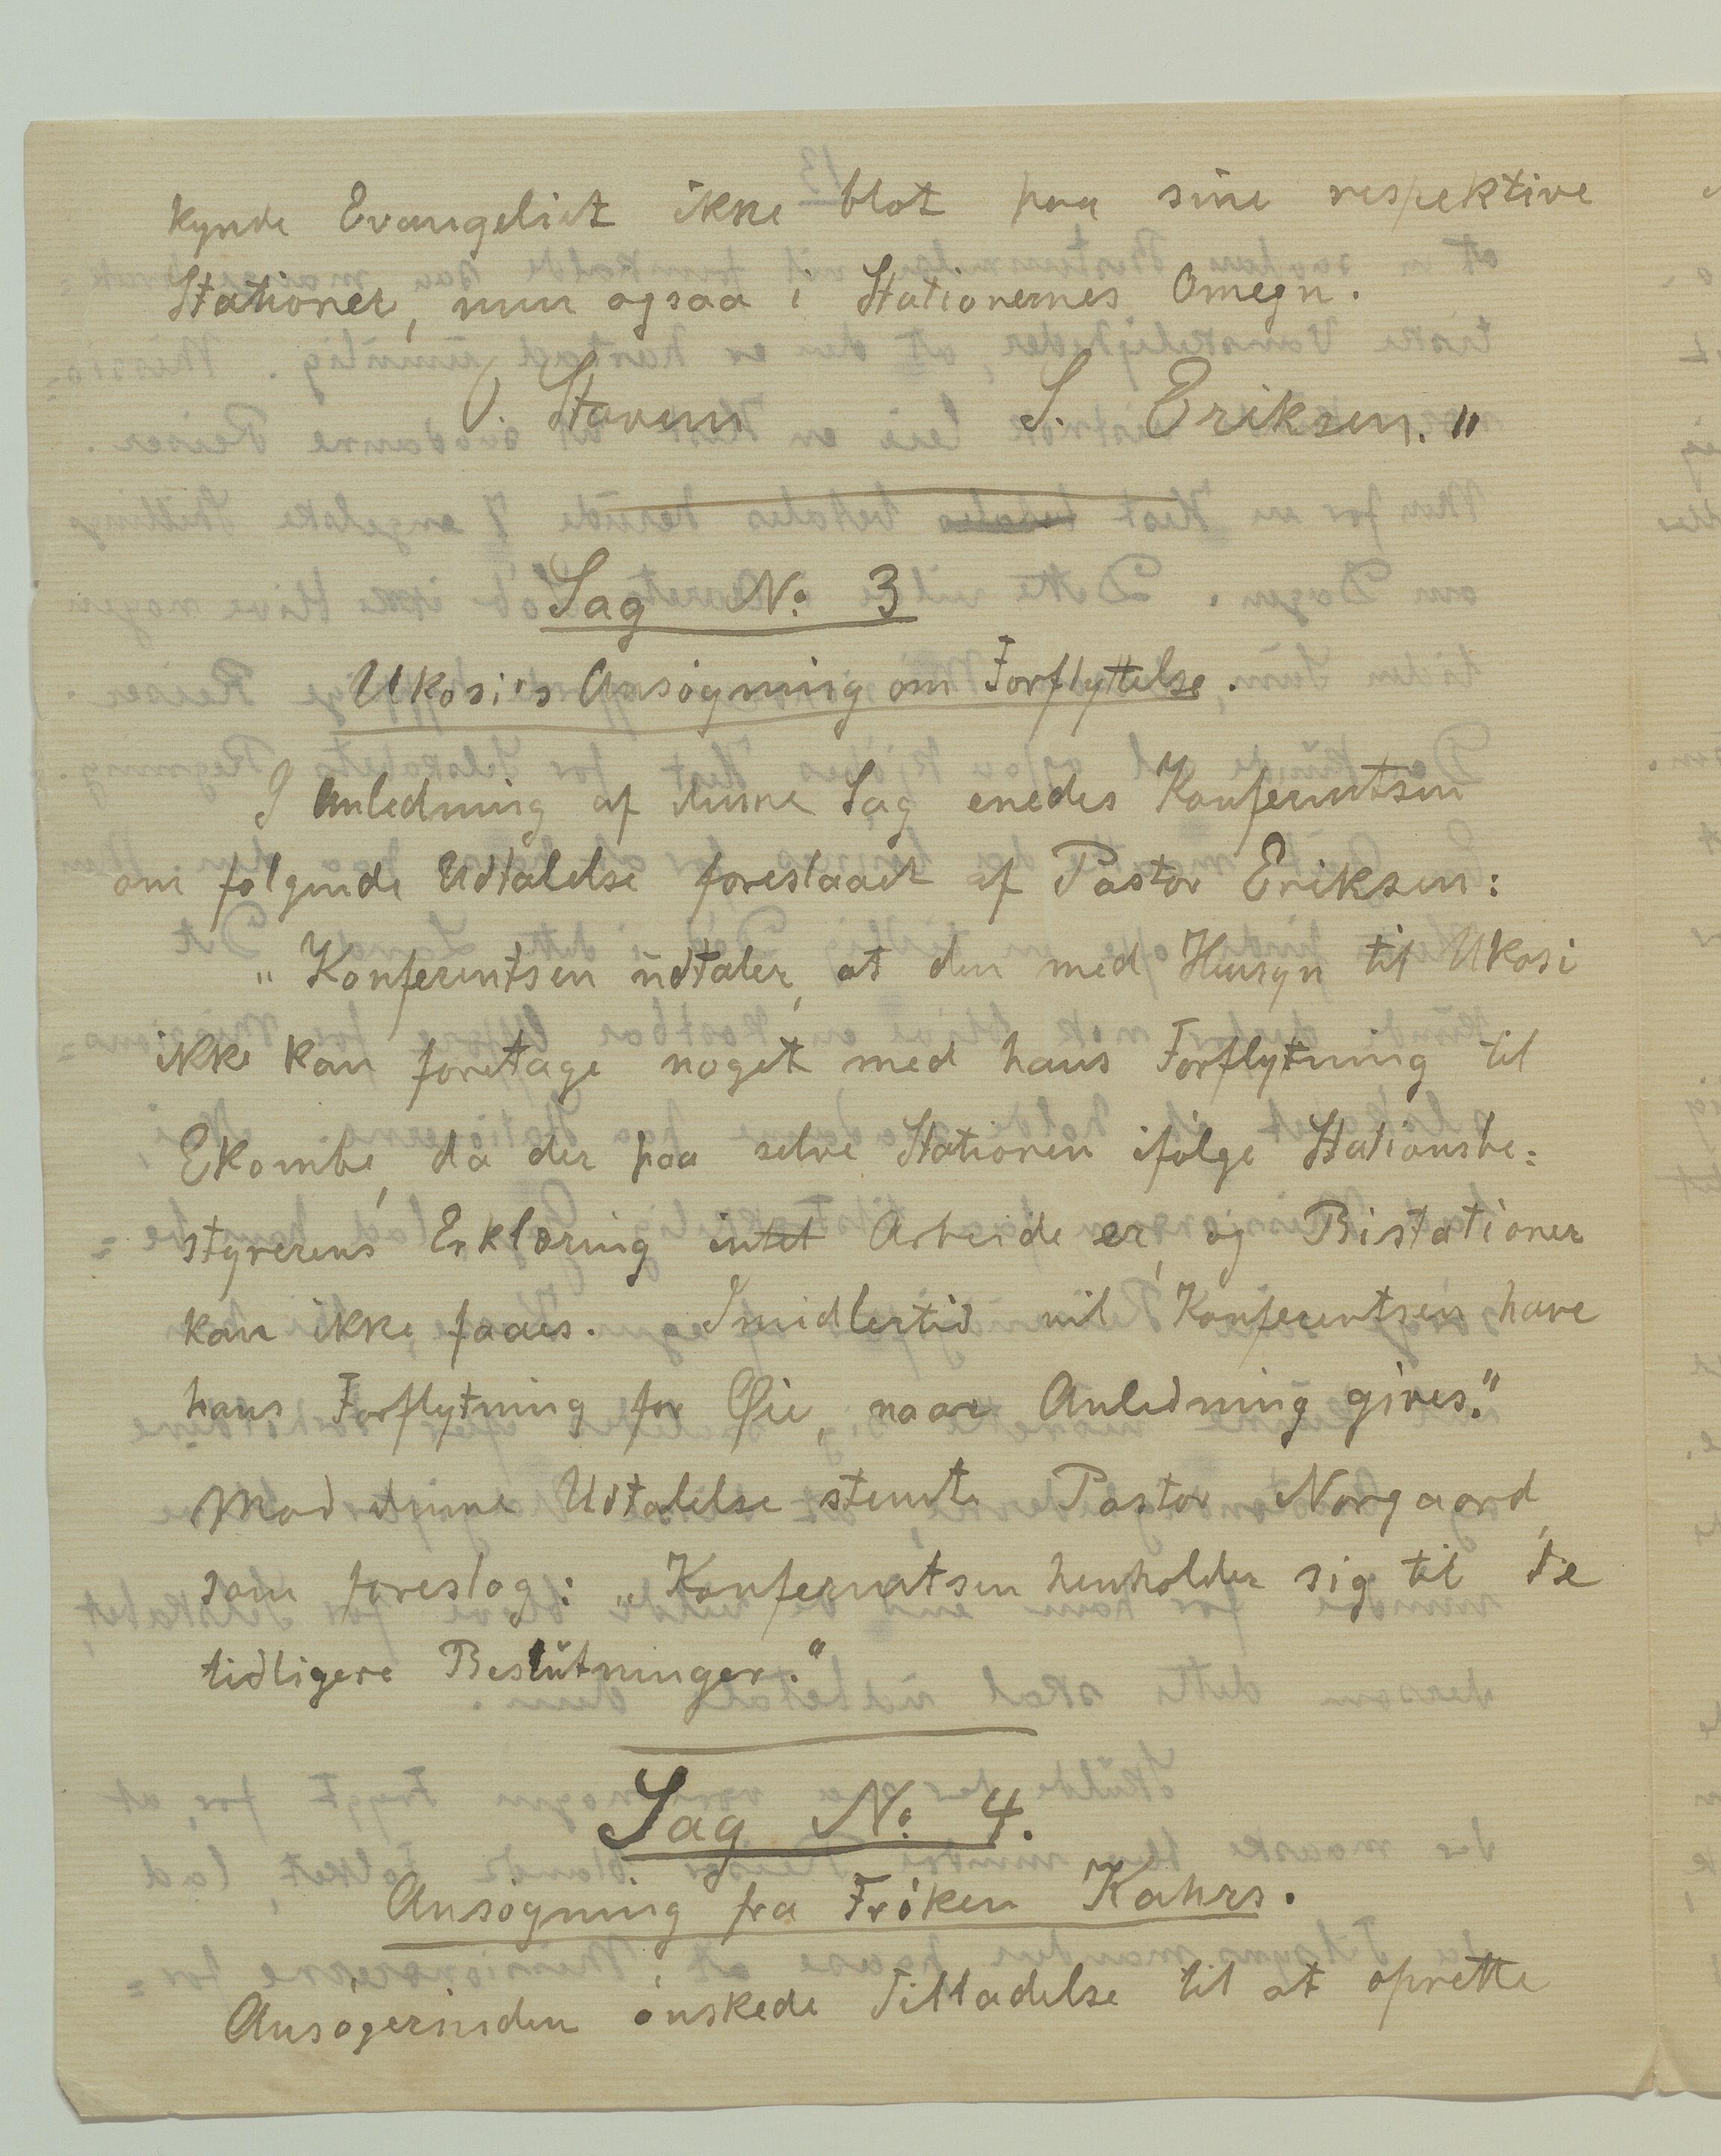 kynde Evangeliet ikke blot paa sine respektive
Stationer, men ogsaa i Stationernes Omegn.
O. Stavem S. Eriksen."
Sag No. 3
Ukosi's Ansøgning om Forflyttelse.
I Anledning af denne Sag enedes Konferentsen
om følgende Udtalelse foreslaaet af Pastor Eriksen:
"Konferentsen udtaler, at den med Hensyn til Ukosi
ikke kan foretage noget med hans Forflytning til
Ekombe, da der paa selve Stationen ifølge Stationsbe=
styrerens Erklæring intet Arbeide er, og Bistationer
kan ikke faaes. Imidlertid vil Konferentsen have
hans Forflytning for Øie, naar Anledning gives."
Mod denne Udtalelse stemte Pastor Norgaard,
som foreslog: "Konferentsen henholder sig til de
tidligere Beslutninger."
Sag No. 4.
Ansøgning fra Frøken Kahrs.
Ansøgerinden ønskede Tilladelse til at oprette